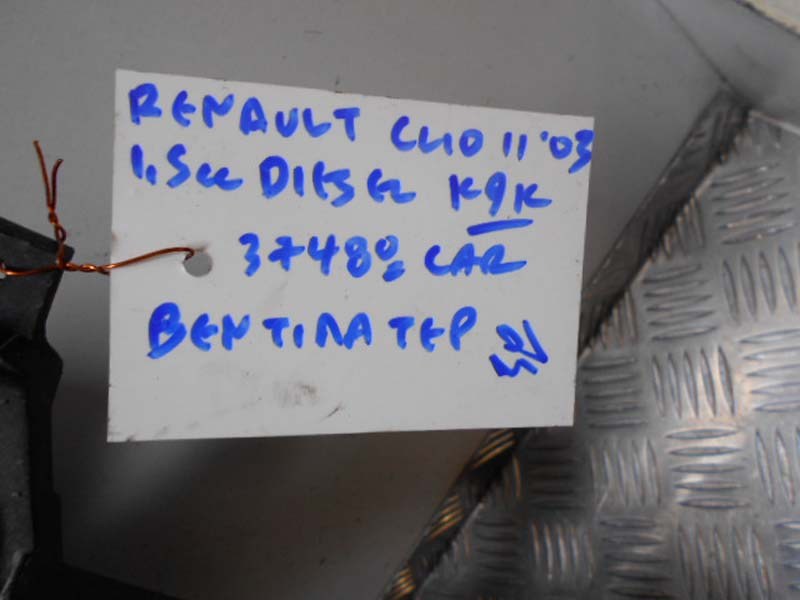 RENAULT CLIO II '03
1,5cc DIESEL K9K
3748º CAR
ΒΕΝΤΙΛΑΤΕΡ